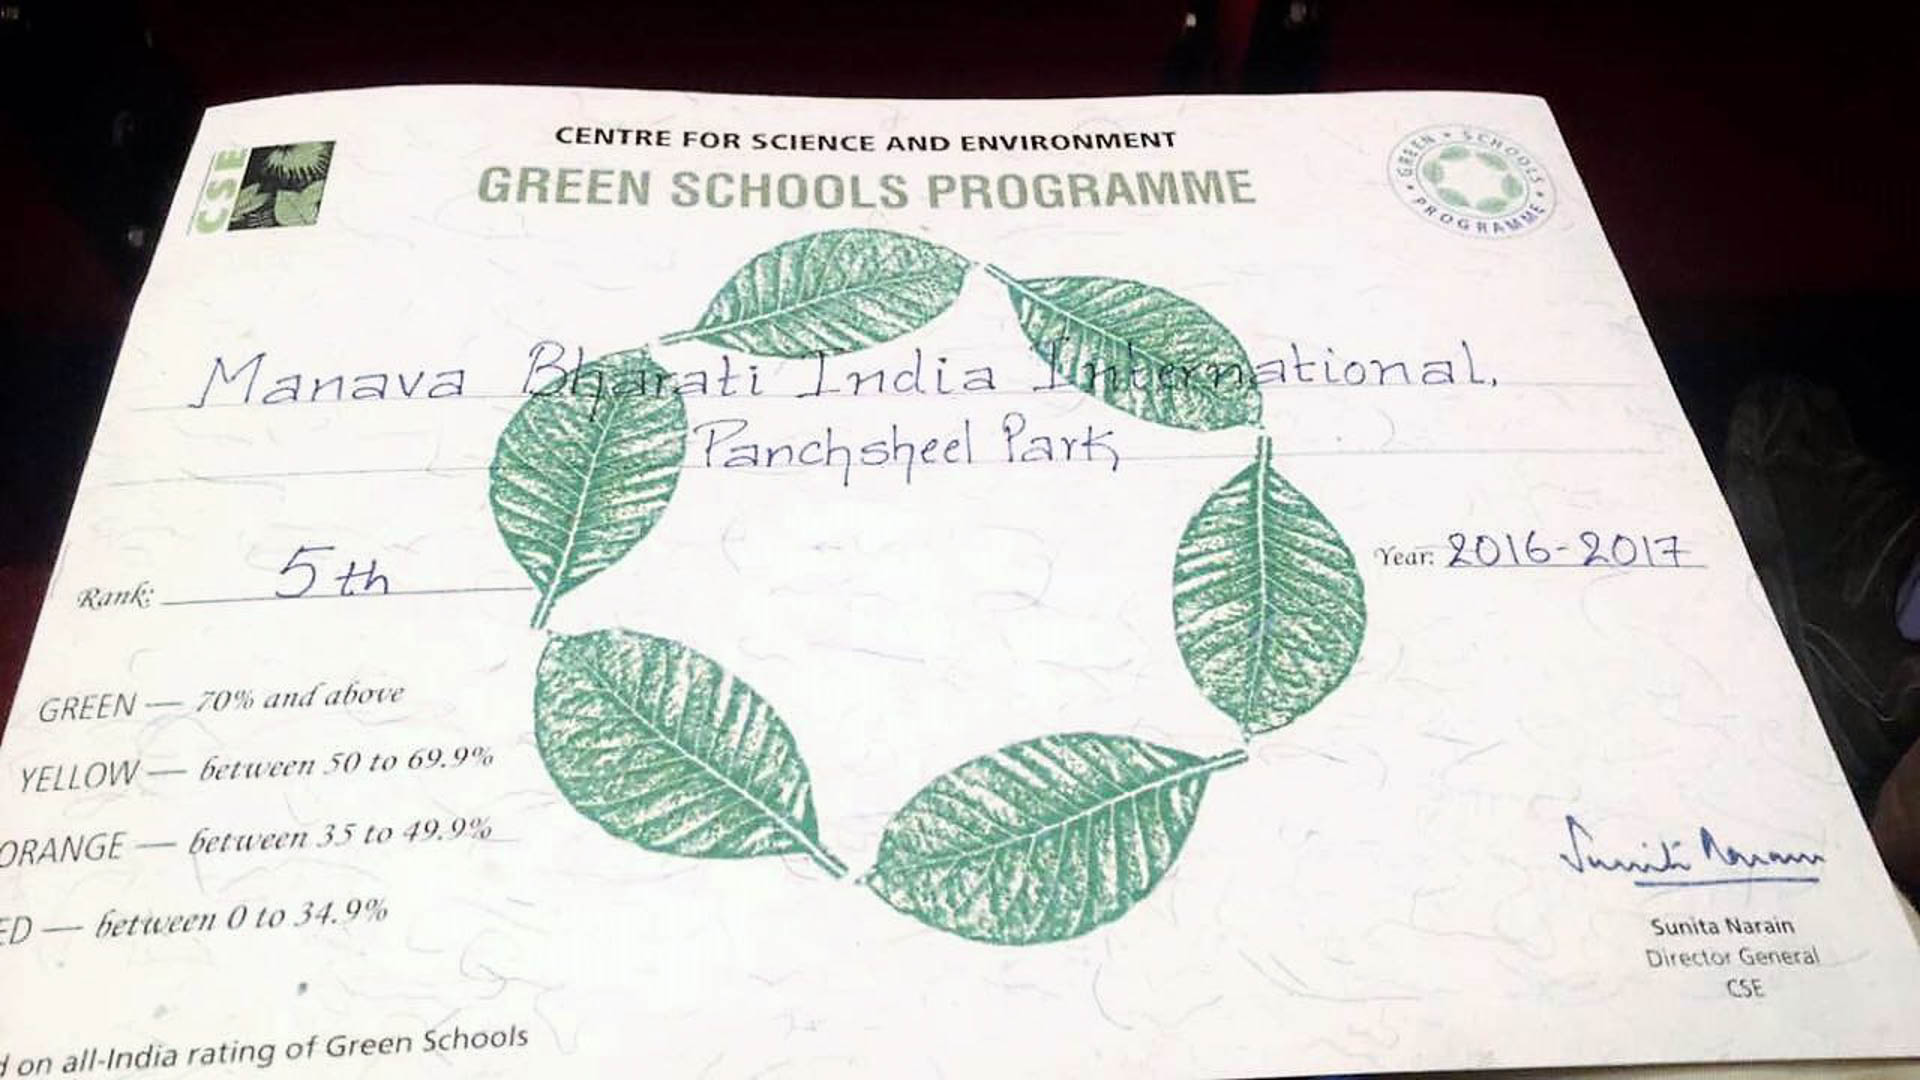 CENTRE FOR SCIENCE AND ENVIRONMENT
GREEN SCHOOLS PROGRAMME
CSE
GREEN • SCHOOLS • PROGRAMME •
Manava Bharati India International,
Panchsheel Park
Rank: 5th
Year: 2016-2017
GREEN — 70% and above
YELLOW — between 50 to 69.9%
ORANGE — between 35 to 49.9%
ED — between 0 to 34.9%
Sunita Narain
Sunita Narain
Director General
CSE
d on all-India rating of Green Schools